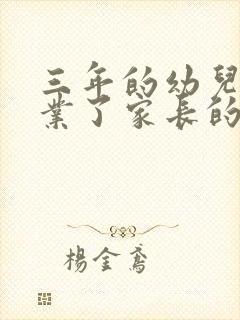 三年的幼兒
業了家長的
楊金鳶